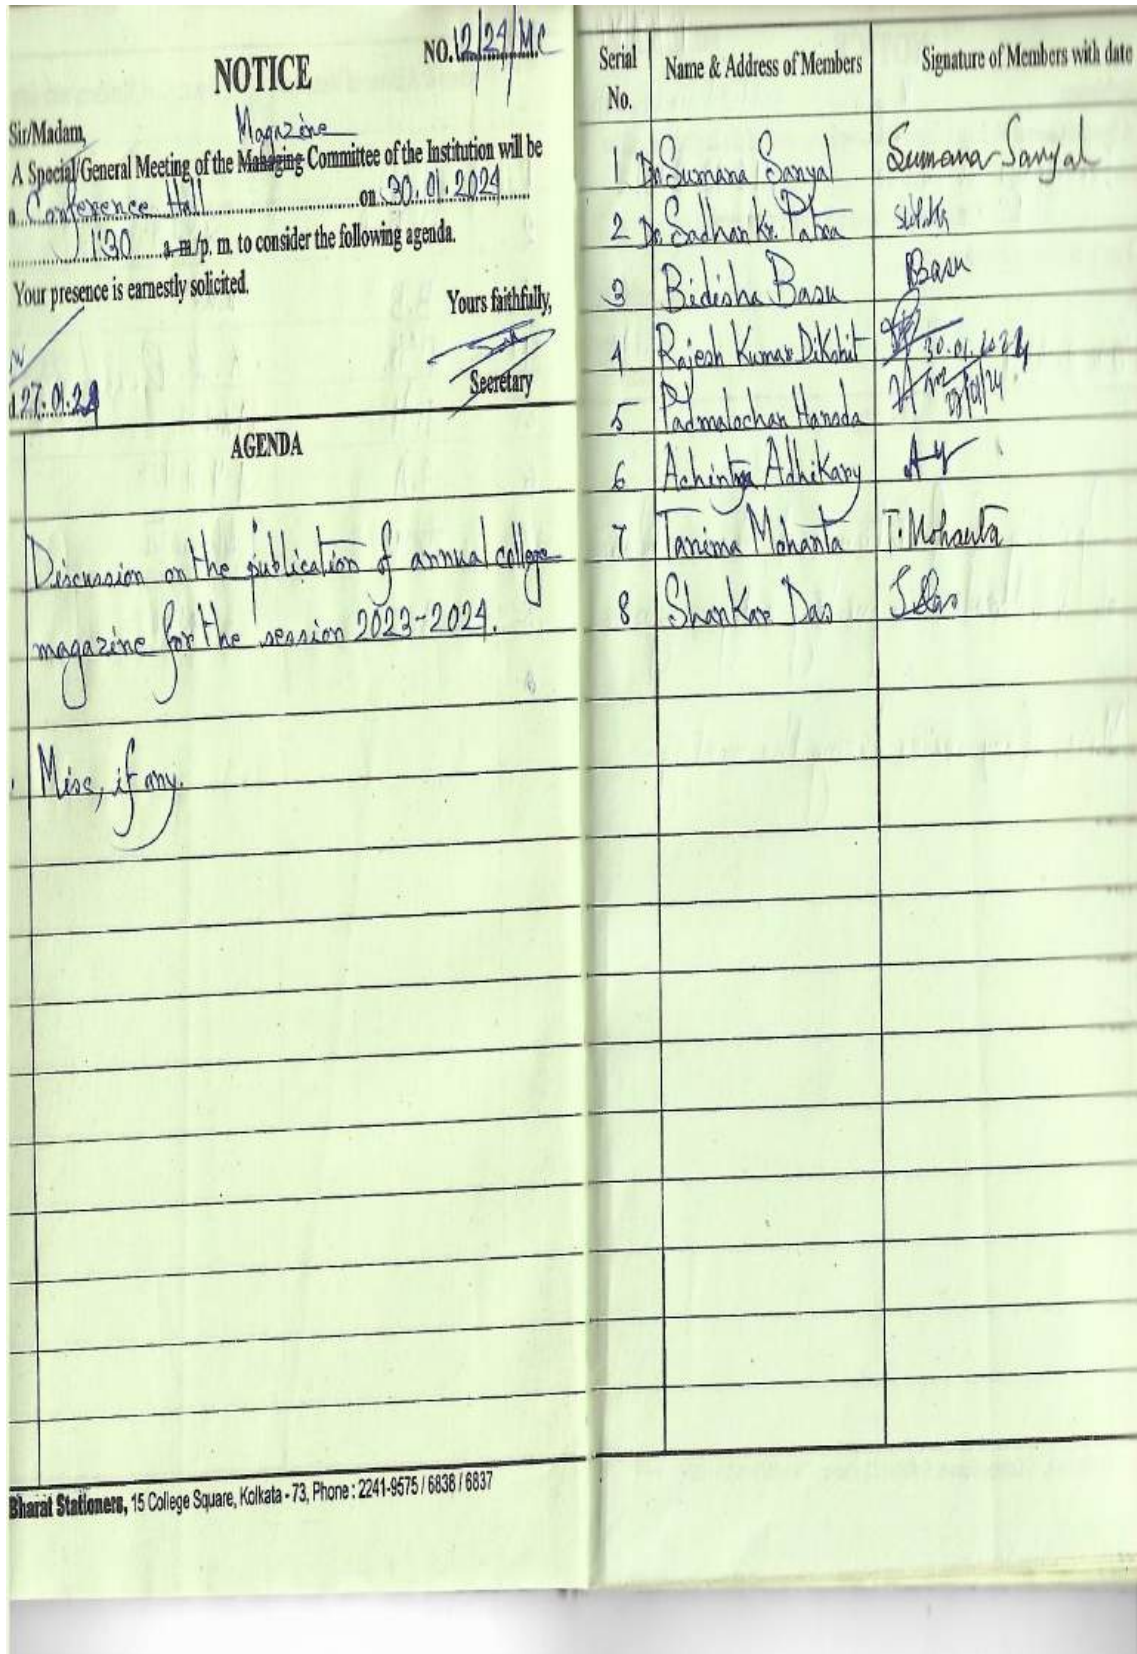 NO. 12/24/M.C
NOTICE
Sir/Madam,
Magazine
A Special/General Meeting of the Managing Committee of the Institution will be
Conference Hall on 30.01.2024
1:30 a.m./p. m. to consider the following agenda.
Your presence is earnestly solicited.
Yours faithfully,
Secretary
27.01.24
AGENDA
Discussion on the publication of annual college
magazine for the session 2023-2024.
Misc, if any.
Bharat Stationers, 15 College Square, Kolkata - 73, Phone : 2241-9575 / 6838 / 6837
Serial No. Name & Address of Members Signature of Members with date
1 Dr. Sumana Sanyal Sumana Sanyal
2 Dr. Sadhan Kr. Patra
3 Bidisha Basu Basu
4 Rajesh Kumar Dikshit 30.01.2024
5 Padmalochan Hansda
6 Achintya Adhikary
7 Tanima Mohanta T. Mohanta
8 Shankar Das S Das